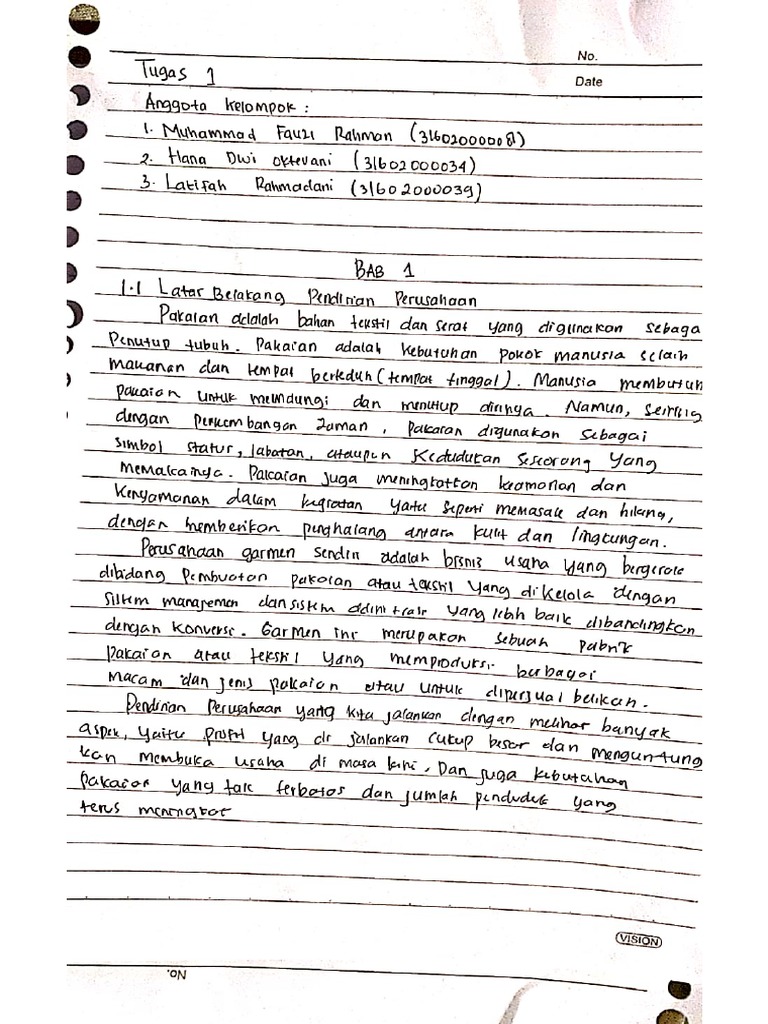 No.
Tugas 1
Date
Anggota kelompok :
1. Muhammad Fauzi Rahman (316020000081)
2. Hana Dwi oktevani (31602000034)
3. Latifah Rahmadani (31602000039)
BAB 1
1.1 Latar Belakang Pendirian Perusahaan
Pakaian adalah bahan tekstil dan serat yang digunakan sebaga
Penutup tubuh. Pakaian adalah kebutuhan pokok manusia selain
makanan dan tempat berteduh (tempat tinggal). Manusia membutuh
pakaian untuk melindungi dan menutup dirinya. Namun, seiring
dengan perkembangan zaman, pakaian digunakan sebagai
simbol status, jabatan, ataupun kedudukan seseorang yang
memakainya. Pakaian juga meningkatkan keamanan dan
kenyamanan dalam kegiatan yaitu seperti memasak dan hiking,
dengan memberikan penghalang antara kulit dan lingkungan.
Perusahaan garmen sendiri adalah bisnis usaha yang bergerak
dibidang pembuatan pakaian atau tekstil yang dikelola dengan
sistem manajemen dan sistem yang lebih baik dibandingkan
dengan konversi. Garmen ini merupakan sebuah pabrik
pakaian atau tekstil yang memproduksi berbagai
macam dan jenis pakaian atau untuk diperjual belikan.
Pendirian Perusahaan yang kita jalankan dengan melihat banyak
aspek, yaitu profit yang di jalankan cukup besar dan menguntung
kan membuka usaha di masa kini. Dan juga kebutuhan
pakaian yang tak terbatas dan jumlah penduduk yang
terus meningkat
VISION
No.